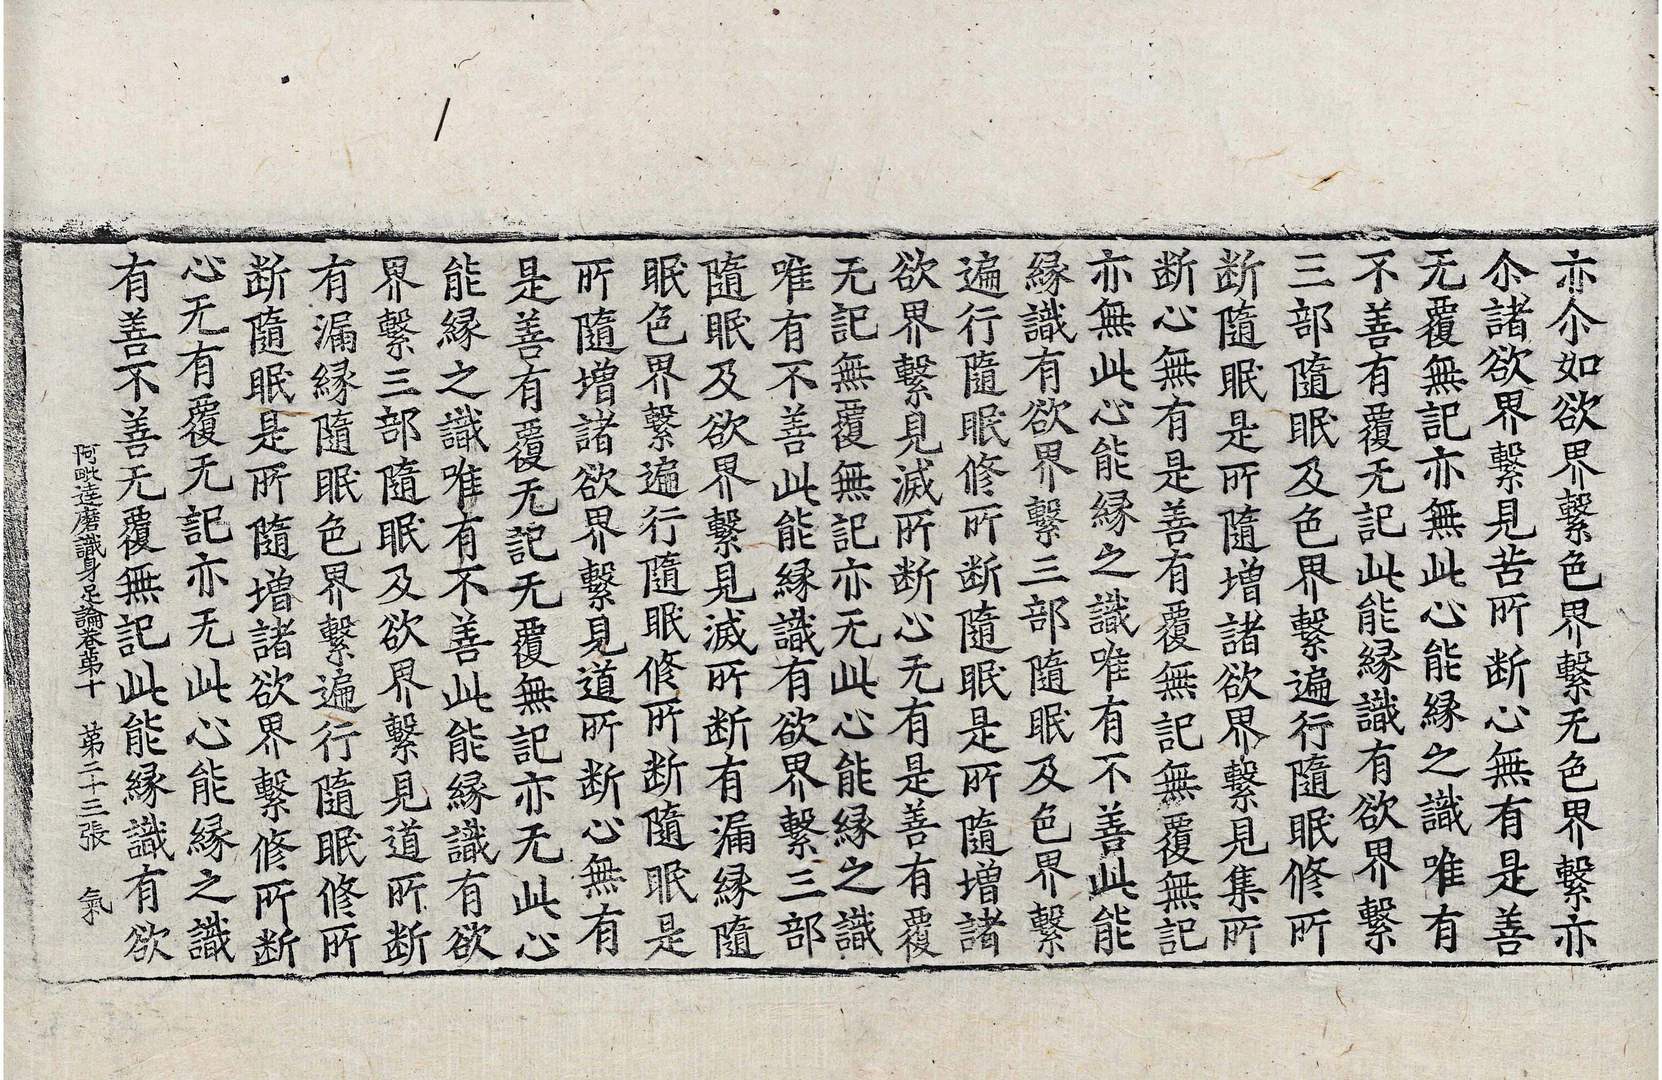 亦尒如欲界繫色界繫无色界繫亦
尒諸欲界繫見苦所断心無有是善
无覆無記亦無此心能緣之識唯有
不善有覆无記此能緣識有欲界繫
三部隨眠及色界繫遍行隨眠修所
断隨眠是所隨增諸欲界繫見集所
断心無有是善有覆無記無覆無記
亦無此心能緣之識唯有不善此能
緣識有欲界繫三部隨眠及色界繫
遍行隨眠修所断隨眠是所隨增諸
欲界繫見滅所断心无有是善有覆
无記無覆無記亦无此心能緣之識
唯有不善此能緣識有欲界繫三部
隨眠及欲界繫見滅所断有漏緣隨
眠色界繫遍行隨眠修所断隨眠是
所隨增諸欲界繫見道所断心無有
是善有覆无記无覆無記亦无此心
能緣之識唯有不善此能緣識有欲
界繫三部隨眠及欲界繫見道所断
有漏緣隨眠色界繫遍行隨眠修所
断隨眠是所隨增諸欲界繫修所断
心无有覆无記亦无此心能緣之識
有善不善无覆無記此能緣識有欲
阿毗達磨識身足論卷第十 第二十三張 氣